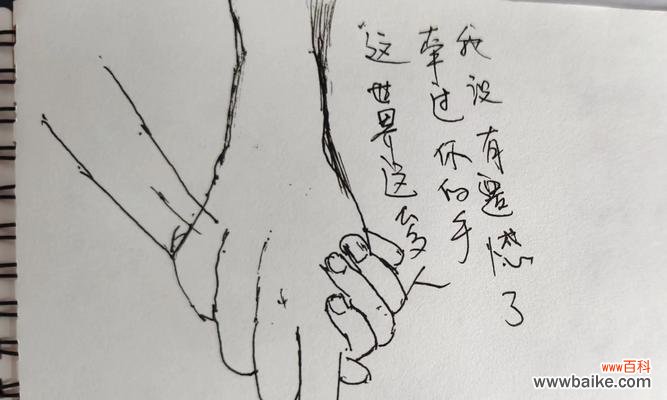 这世界这么多人
牵过你的手
我没有遗憾了
www百科
wwwbaike.com